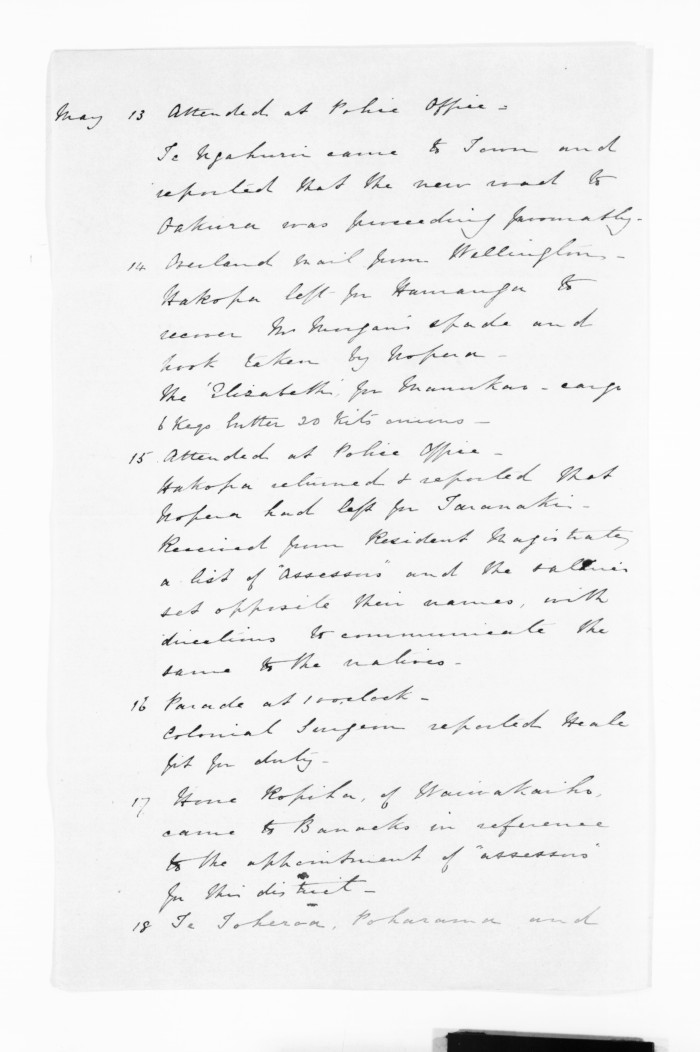 May 13 Attended at Police Office -
Te Ngahuru came to Town and
reported that the new road to
Oakura was proceeding favourably -
14 Overland Mail from Wellington -
Hakopa left for Hauranga to
recover Mr Morgan's spade and
hook taken by Nopera -
The 'Elizabeth' for Manukau - cargo
6 Kegs butter 20 Kits onions -
15 Attended at Police Office -
Hakopa returned & reported that
Nopera had left for Taranaki -
Received from Resident Magistrate,
a list of "assessors" and the salaries
set opposite their names, with
directions to communicate the
same to the natives -
16 Parade at 10 o'clock -
Colonial Surgeon reported Heale
fit for duty -
17 Hone Ropiha, of Waiwakaiho,
came to Barracks in reference
to the appointment of "assessors"
for this district -
18 Te Toheroa, Poharama and